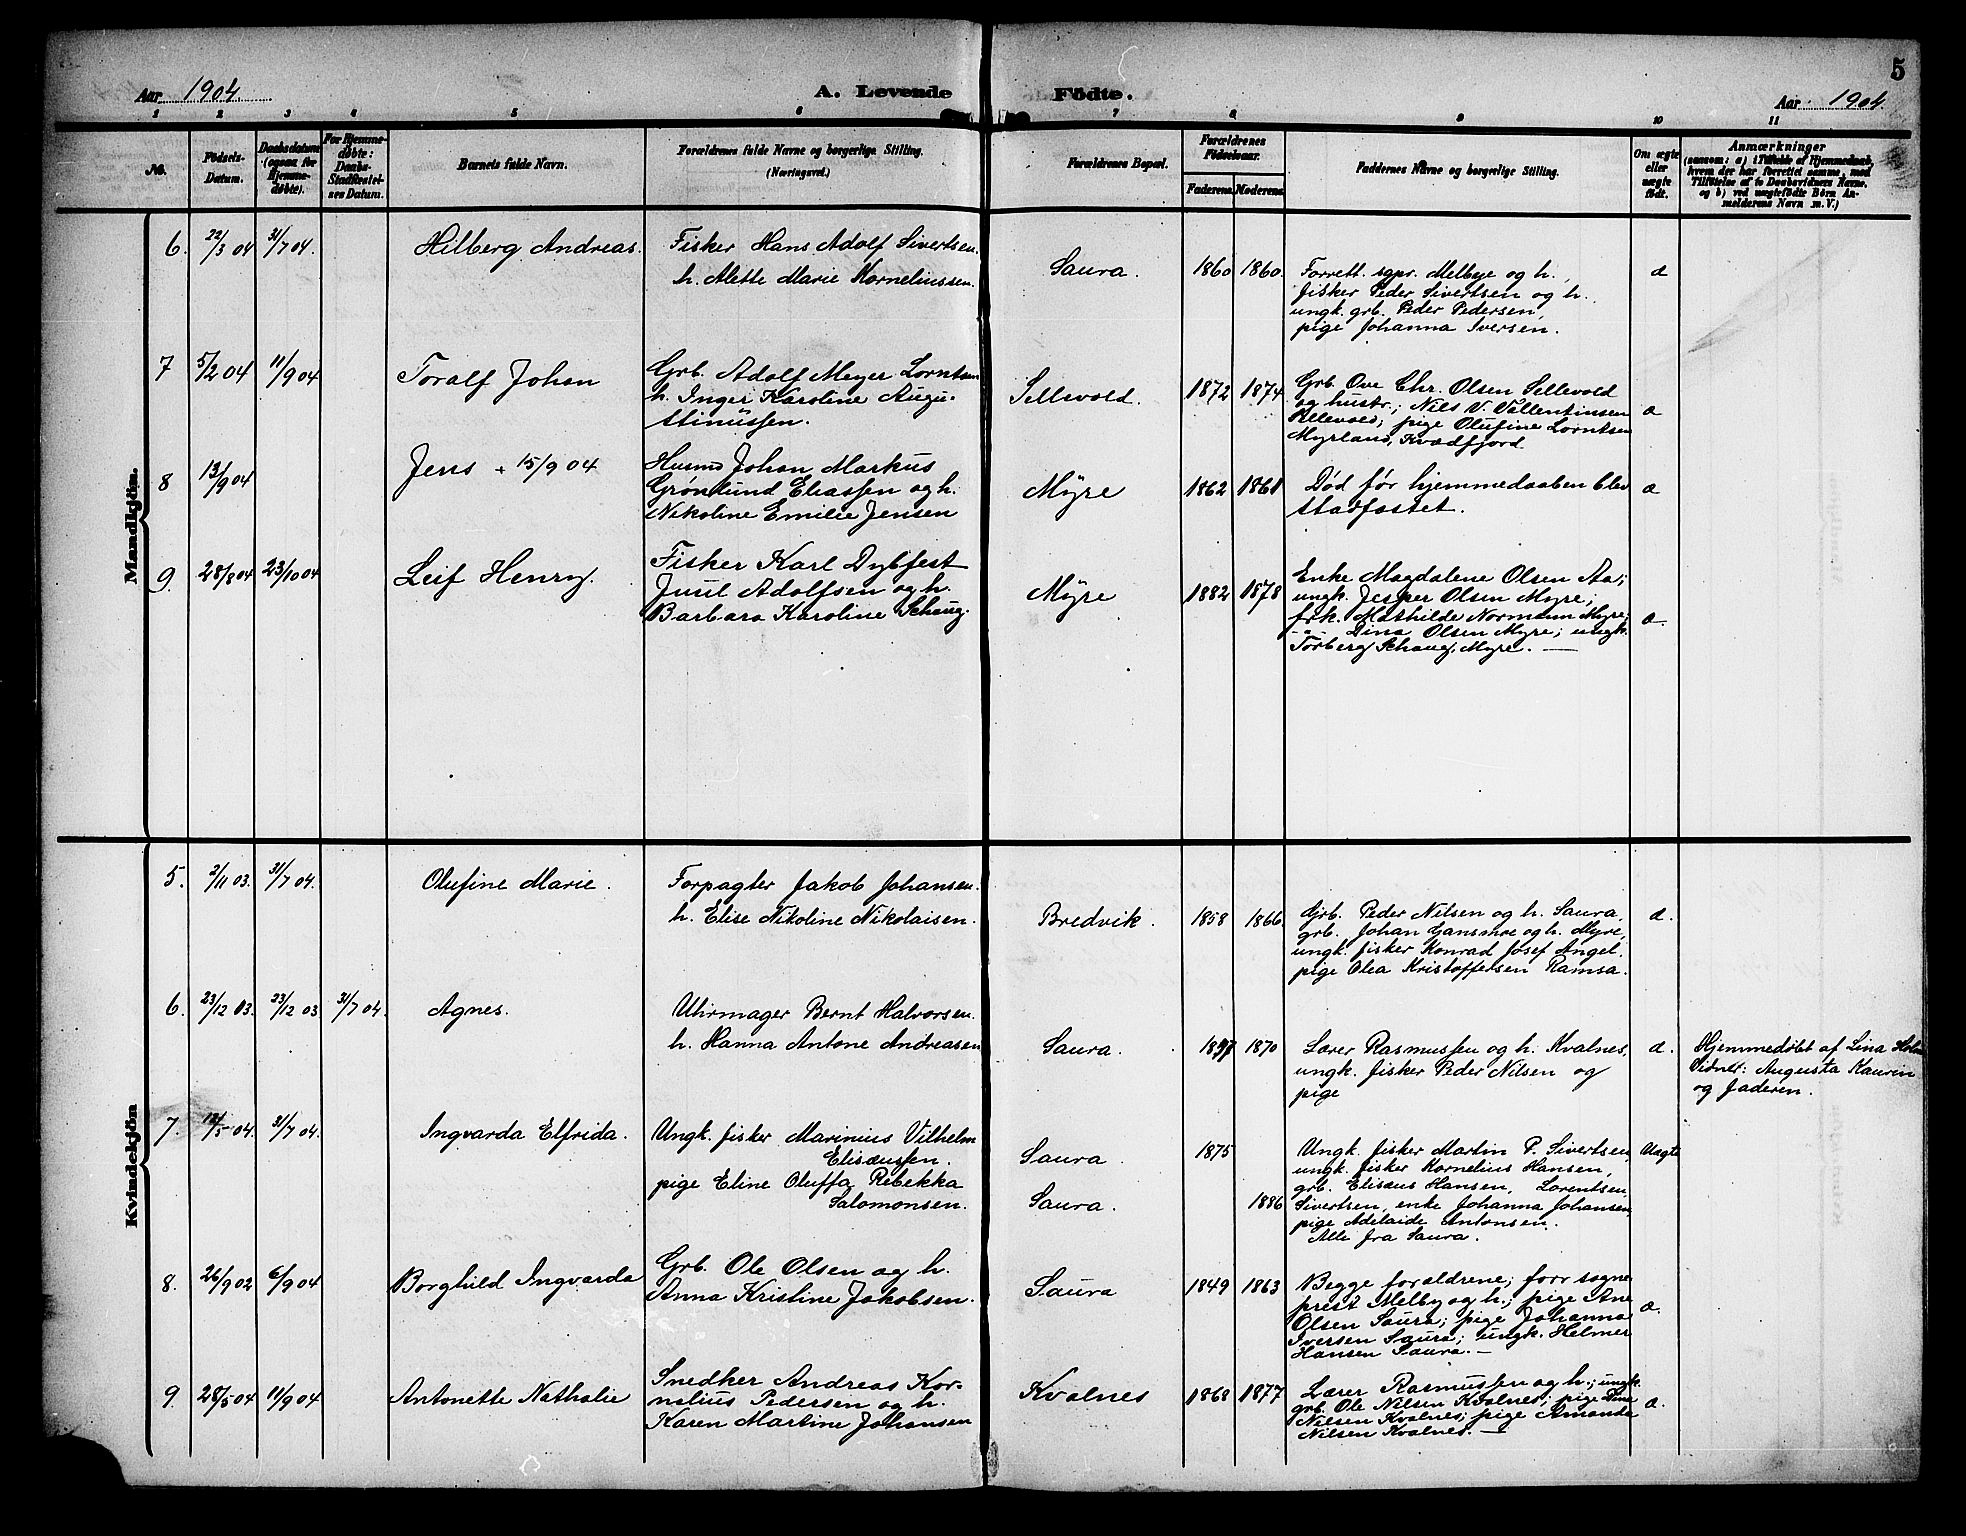 5
Aar 1904
A. Levende
Födte.
Aar 1904.
1 2 3 4 5 6 7 8 9 10 11
No.
Födsels-
Datum.
Daabsdatum
(ogsaa for
Hjemme-
døbte).
For Hjemme-
døbte:
Daabs-
Stadfæstel-
ses Datum.
Barnets fulde Navn.
Forældrenes fulde Navne og borgerlige Stilling.
(Næringsvei.)
Forældrenes Bopæl.
Forældrenes
Födselsaar.
Faderens.
Moderens.
Faddernes Navne og borgerlige Stilling.
Om ægte
eller
uægte
født.
Anmærkninger
(saasom: a) i Tilfælde af Hjemmedaab,
hvem der har forrettet samme, med
Tilføielse af to Daabsvidners Navne,
og b) ved uægtefødte Børn An-
melderens Navn m. V.)
Mandkjön.
6. 22/3 04 31/7 04. Hilberg Andreas.
Fisker Hans Adolf Sivertsen.
h. Alette Marie Kornelinssen.
Saura. 1860 1860.
Forrett. sgpr. Melbye og h.,
fisker Peder Sivertsen og h.,
ungk. grb. Peder Pedersen,
pige Johanna Iversen.
æ
7 5/2 04 11/9 04 Toralf Johan
Grb. Adolf Meyer Lorntsen
h. Inger Karoline Augu-
stinussen.
Sellevold. 1872 1874
Grb. Ove Chr. Olsen Sellevold
og hustr.; Nils V. Vallentinsen
Sellevold; pige Olufine Lorntsen
Myrland, Kvædfjord
æ
8 13/9 04 Jens + 15/9 04
Husmd Johan Markus
Grønlund Eliassen og h.
Nikoline Emilie Jensen
Myre 1862 1861
Død før hjemmedaaben blev
stadfæstet.
æ
9. 28/8 04 23/10 04 Leif Henry.
Fisker Karl Dybfest
Juul Adolfsen og h.
Barbara Karoline Schaug.
Myre 1882 1878
Enke Magdalene Olsen Aa;
ungk. Jesper Olsen Myre;
frk. Mathilde Normann Myre;
-"- Dina Olsen Myre; ungk.
Torberg Schaug, Myre. —
æ.
Kvindekjön
5. 2/11 03. 31/7 04. Olufine Marie.
Forpagter Jakob Johansen.
h. Elise Nikoline Nikolaisen.
Bredvik. 1858 1866.
Grb. Peder Nilsen og h. Saura,
grb. Johan Gansmoe og h. Myre,
ungk. fisker Konrad Josef Angel.
pige Olea Kristoffersen Ramsa.
æ.
6. 23/12 03. 23/12 03 31/7 04. Agnes.
Uhrmager Bernt Halvorsen.
h. Hanna Antone Andreasen
Saura. 1870
Lærer Rasmussen og h. Kvalnes,
ungk. fisker Peder Nilsen og
pige
æ.
Hjemmedøbt af Lina Holm
Vidner: Augusta Kaurin
og faderen.
7. 31/7 04. Ingvarda Elfrida.
Ungk. fisker Marinius Vilhelm
Elisæussen.
pige Eline Oluffa Rebekka
Salomonsen.
Saura 1875
Saura. 1886
Ungk. fisker Martin P. Sivertsen,
ungk. fisker Kornelius Hansen,
grb. Elisæus Hansen, Lorentsen,
Sivertsen, enke Johanna Johansen,
pige Adelaide Antonsen.
Alle fra Saura.
Uægte
8. 26/9 02 6/9 04 Borghild Ingvarda
Grb. Ole Olsen og h.
Anna Kristine Jakobsen.
Saura 1849 1863
Begge forældrene; forr sogne
prest Melby og h.; pige Ane
Olsen Saura; pige Johanna
Iversen Saura; ungk. Helmer
Hansen Saura. —
æ.
9. 28/5 04 11/9 04 Antonette Nathalie
Snedker Andreas Kor-
nelius Pedersen og h.
Karen Martine Johansen
Kvalnes 1868 1877
Lærer Rasmussen og h.; ungk.
grb. Ole Nilsen Kvalnes; pige
Nilsen Kvalnes; pige Amanda
Nilsen Kvalnes. —
æ.